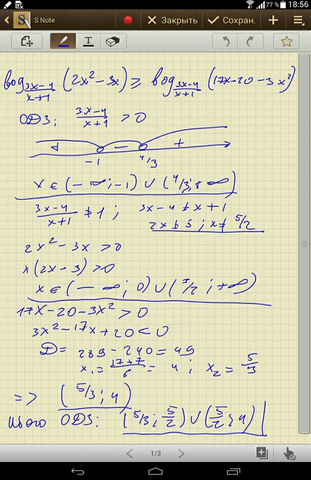 77% 18:56
S Note
Закрыть Сохран.
log_{\frac{3x-4}{x+1}} (2x²-3x) ≥ log_{\frac{3x-4}{x+1}} (17x-20-3x²)
ОДЗ: \frac{3x-4}{x+1} > 0
+ - +
-1 4/3
x ∈ (-∞; -1) ∪ (4/3; ∞)
\frac{3x-4}{x+1} ≠ 1 ; 3x-4 ≠ x+1
2x ≠ 5 ; x ≠ 5/2
2x²-3x > 0
x(2x-3) > 0
x ∈ (-∞; 0) ∪ (3/2; +∞)
17x-20-3x² > 0
3x²-17x+20 < 0
D = 289-240 = 49
x₁ = \frac{17+7}{6} = 4 ; x₂ = \frac{5}{3}
=> (5/3; 4)
Итого ОДЗ: (5/3; \frac{5}{2}) ∪ (\frac{5}{2}; 4)
1/3